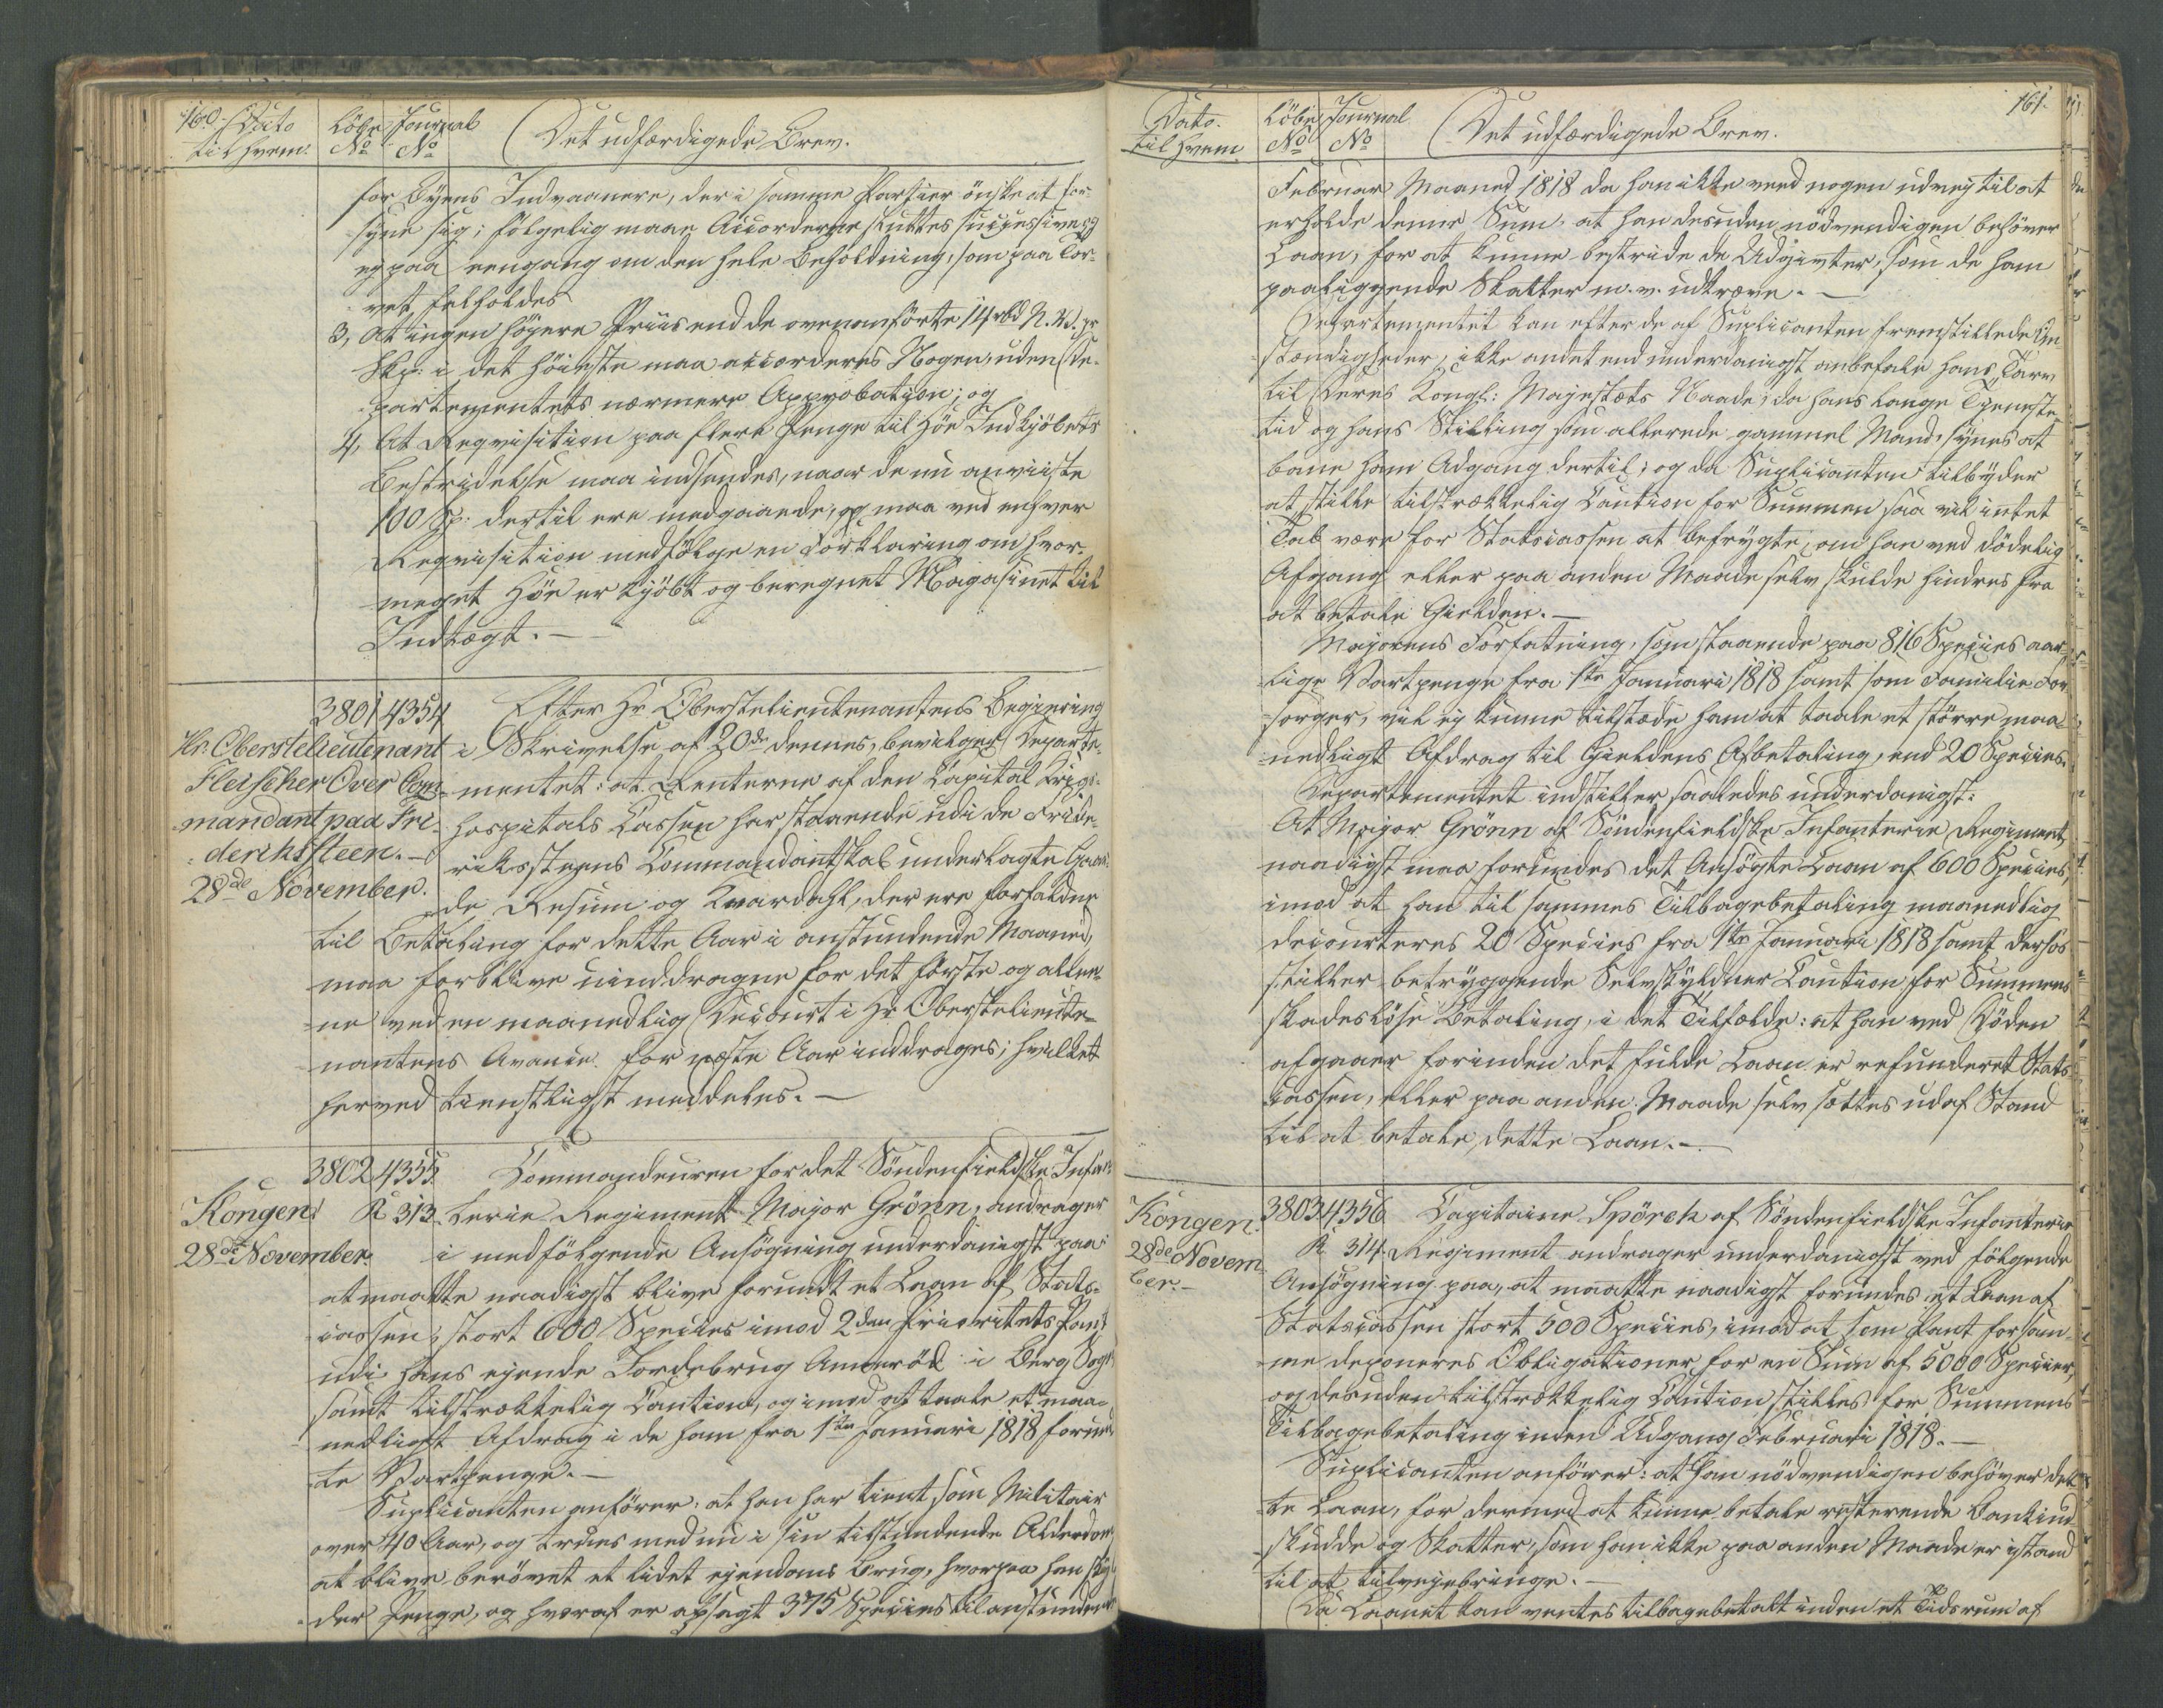 160. Dato
til hvem.
Löbe
No
Journal
No
Det udfærdigede Brev.
for Byens Indvaanere, der i samme Partier önske at for-
syne sig; fölgelig maae Accorderne sluttes successive og
ey paa eengang om den hele Beholdning, som paa Tor-
vet falholdes
3, At ingen höyere Priis end de ovenanförte 14 rbd N. V. pr
Skp: i det höieste maa accorderes Nogen, uden De-
partementets nærmere Approbation; og
4, At Reqvisition paa flere Penge til Höe Indkjöbets
Bestridelse maa indsendes, naar de nu anviiste
100 Sp: dertil ere medgaaende, og maa ved enhver
Reqvisition medfölge en Forklaring om hvor-
meget Höe er kjöbt og beregnet Magasinet til
Indtægt. —
3801 4354
Hr. Oberstelieutenant
Fleischer Over Com-
mandant paa Fri-
derichssteen. —
28de November.
Efter Hr Oberstelieutenantens Begjering
i Skrivelse af 20de dennes, bevilges Departe-
mentet: at Renterne af den Capital Krigs-
hospitals Cassen har staaende udi de Fride-
rikssteens Commandantskab underlagte Gaar-
de Resum og Kvardahl, der ere forfaldne
til Betaling for dette Aar i anstundende Maaned,
maa forblive uinddragne for det förste og allee-
ne ved en maanedlig Decourt i Hr Oberstelieute-
nantens Avance for næste Aar inddrages; hvilket
herved tienstligst meddeles. —
3802 4355
K 313.
Kongen!
28de November.
Commandeuren for det Söndenfieldske Infan-
terie Regiment Major Grönn, andrager
i medfölgende Ansögning underdanigst paa
at maatte naadigst blive forundt et Laan af Stats-
cassen, stort 600 Species imod 2den Prioritets Pant
udi hans eyende Jordebrug Anneröd i Berg Sogn
samt tilstrækkelig Caution, og imod at taale et maa-
nedligt Afdrag i de ham fra 1ste Januari 1818 forund-
te Vartpenge. —
Suplicanten anförer: at han har tient som Militair
over 40 Aar, og trues med nu i sin tilstundende Alderdom
at blive berövet et lidet eyendoms Brug, hvorpaa han skyl-
der Penge, og hvoraf er opsagt 375 Species til anstundende
161.
Dato.
til hvem
Löbe
No
Journal
No
Det udfærdigede Brev.
Februar Maaned 1818 da han ikke veed nogen udvey til at
erholde denne Sum, at han desuden nödvendigen behöver
Laan, for at kunne bestride de Udgivter, som de ham
paaliggende Skatter m. v. udkræve. —
Departementet kan efter de af Suplicanten fremstillede Om-
stændigheder, ikke andet end underdanigst anbefale hans Tarv
til Deres Kongl: Majestæts Naade; da hans lange Tjeneste
tid og hans Stilling som allerede gammel Mand, synes at
bane ham Adgang dertil; og da Suplicanten tilbyder
at stille tilstrækkelig Caution for Summen saa vil intet
Tab være for Statscassen at befrygte, om han ved dödelig
Afgang eller paa anden Maade selv skulde hindres fra
at betale Gielden. —
Majorens Forfatning, som staaende paa 816 Species aar-
lige Vartpenge fra 1ste Januari 1818 samt som Familie For-
sörger, vil ej kunne tilstæde ham at taale et större maa-
nedligt Afdrag til Gieldens Afbetaling, end 20 Species.
Departementet indstiller saaledes underdanigst:
At Major Grönn af Söndenfieldske Infanterie Regiment
naadigst maa forundes det Ansögte Laan af 600 Species,
imod at han til sammes Tilbagebetaling maanedlig
decourteres 20 Species fra 1ste Januari 1818 samt derhos
stiller betryggende Selvskyldner Caution for Summens
skadeslöse Betaling, i det Tilfælde: at han ved Döden
afgaaer forinden det fulde Laan er refunderet Stats-
cassen, eller paa anden Maade selv sættes udaf Stand
til at betale dette Laan. —
3803 4356
K 314
Kongen.
28de Novem
ber. —
Capitaine Spörck af Söndenfieldske Infanterie
Regiment andrager underdanigst ved fölgende
Ansögning paa, at maatte naadigst forundes et Laan af
Statscassen stort 500 Species, imod at som Pant for sam-
me deponeres Obligationer for en Sum af 5000 Species,
og desuden tilstrækkelig Caution stilles for Summens
Tilbagebetaling inden Udgang Februari 1818. —
Suplicanten anförer: at han nödvendigen behöver det-
te Laan, for dermed at kunne betale resterende Bankind-
skudde og Skatter, som han ikke paa anden Maade er istand
til at tilveyebringe. —
Da Laanet kan ventes tilbagebetalt inden et Tidsrum af